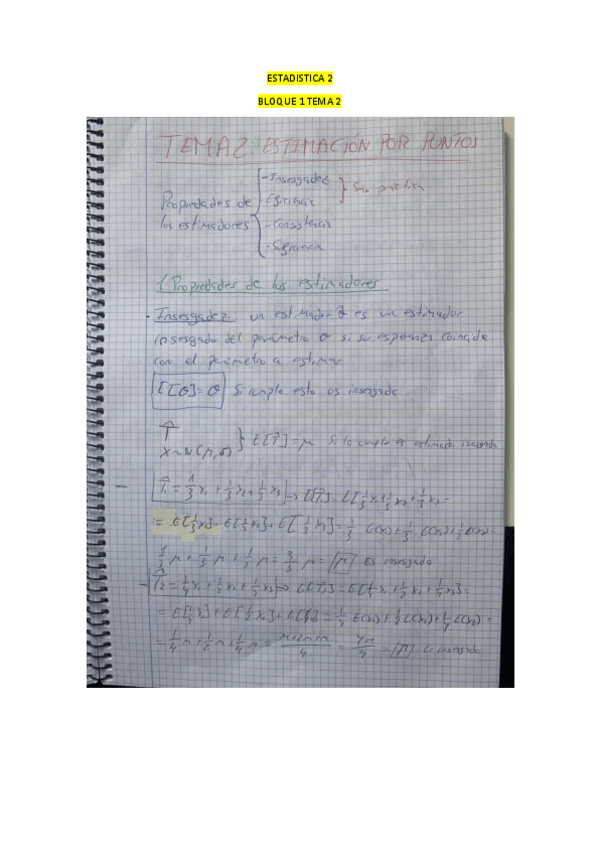 ESTADISTICA 2
BLOQUE 1 TEMA 2
TEMA 2: ESTIMACIÓN POR PUNTOS
Propiedades de los estimadores
- Insesgadez
- Eficiencia
- Consistencia
- Suficiencia
1 Propiedades de los estimadores
· Insesgadez un estimador θ̂ es un estimador
insesgado del parámetro θ si su esperanza coincide
con el parámetro a estimar
E[θ̂]=θ Si cumple esto es insesgado
T̂
X~N(μ,σ) } E[T̂]=μ Si lo cumple es estimador insesgado
- T̂₁ = 1/3 x₁ + 1/3 x₂ + 1/3 x₃ → E[T̂₁] = E[1/3 x₁ + 1/3 x₂ + 1/3 x₃] =
= E[1/3 x₁] + E[1/3 x₂] + E[1/3 x₃] = 1/3 E(x₁) + 1/3 E(x₂) + 1/3 E(x₃) =
1/3 μ + 1/3 μ + 1/3 μ = 3/3 μ = μ Es insesgado
- T̂₂ = 1/4 x₁ + 1/2 x₂ + 1/4 x₃ → E[T̂₂] = E[1/4 x₁ + 1/2 x₂ + 1/4 x₃] =
= E[1/4 x₁] + E[1/2 x₂] + E[1/4 x₃] = 1/4 E(x₁) + 1/2 E(x₂) + 1/4 E(x₃) =
= 1/4 μ + 1/2 μ + 1/4 μ = μ+2μ+μ/4 = 4μ/4 = μ Es insesgado